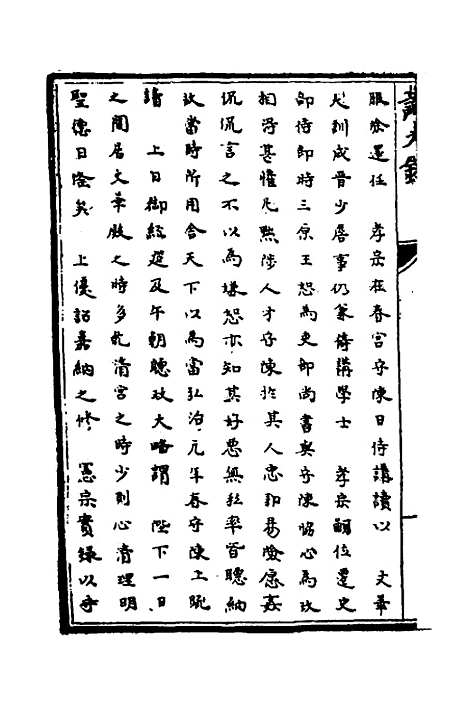 服除還任 孝宗在春宮守陳日侍講讀以 文華
大訓成晋少詹事仍兼侍講學士 孝宗嗣位遷吏
部侍郎時三原王恕為吏部尚書與守陳協心為政
相得甚懽凡黜陟人才守陳於其人忠邪易險愿嘉
侃侃言之不以為嫌恕亦知其好惡無私率皆聽納
故當時所用舍天下以為當弘治元年春守陳上疏
請 上日御經筵及午朝聽政大略謂 陛下一日
之間居文華殿之時多乾清宮之時少則心清理明
聖德日隆矣 上優詔嘉納之修 憲宗實錄以守